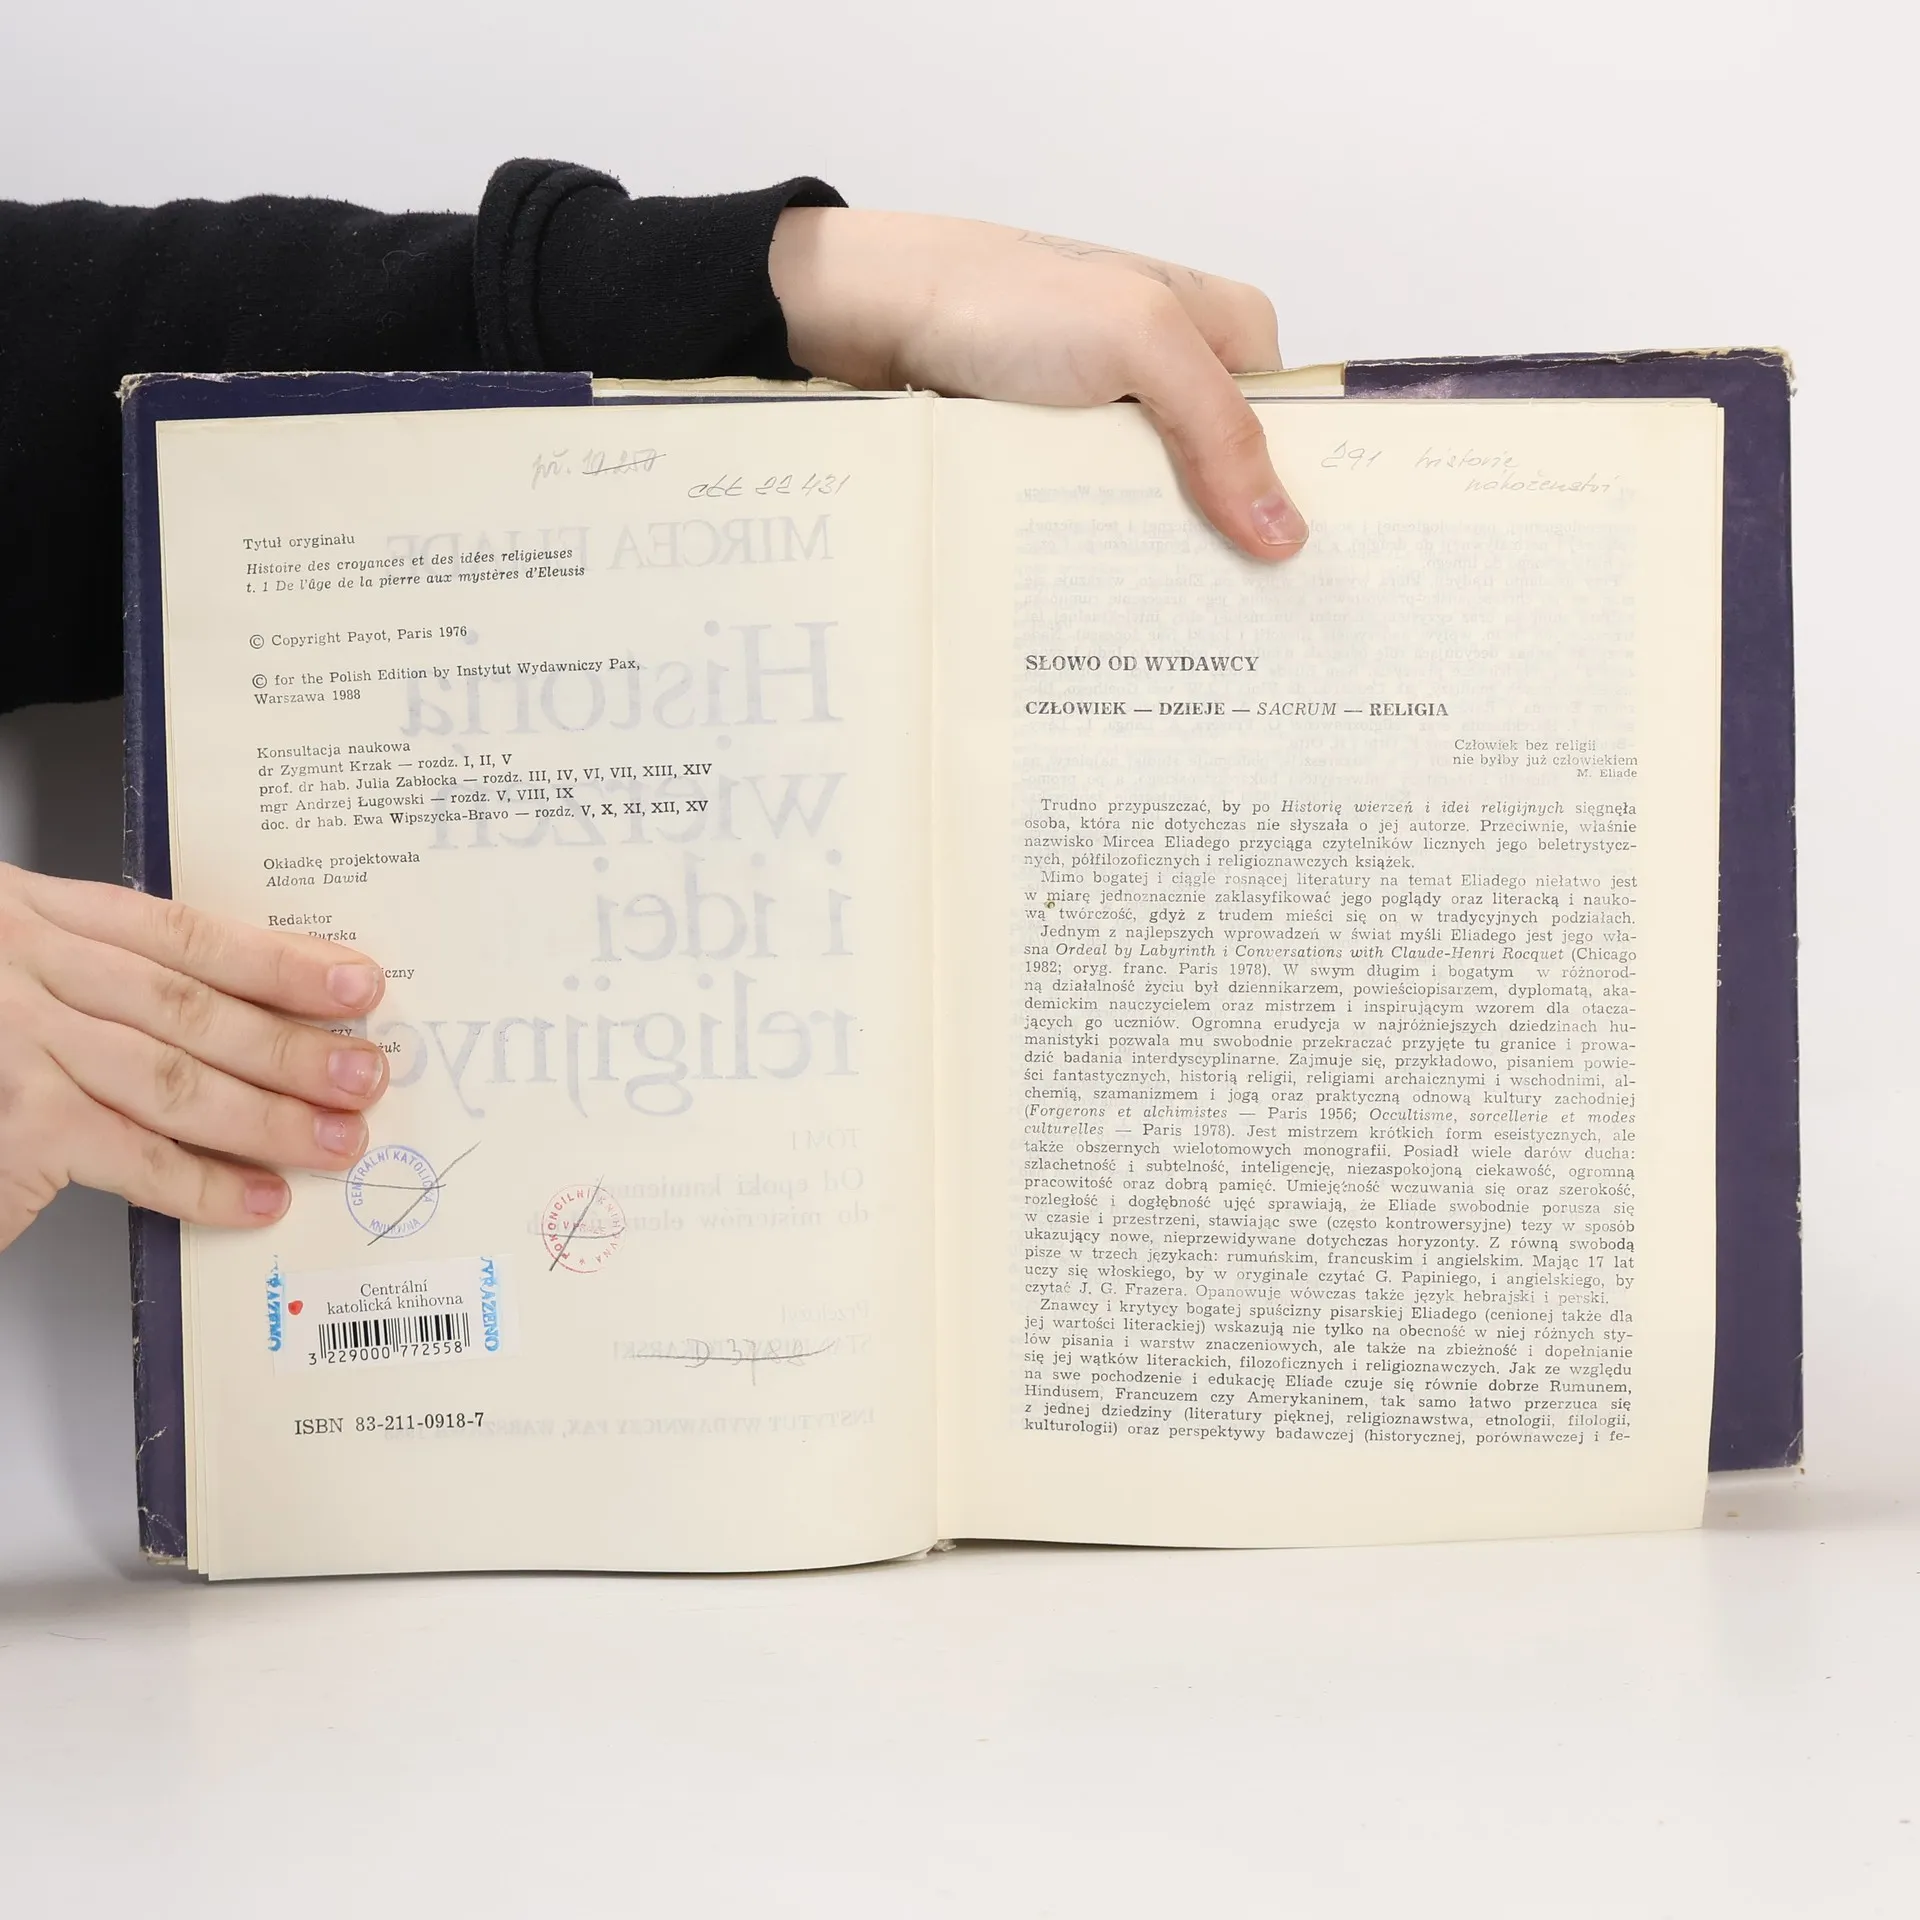 př. 10.250
CKK 22 431
Tytuł oryginału
Histoire des croyances et des idées religieuses
t. 1 De l'âge de la pierre aux mystères d'Eleusis
© Copyright Payot, Paris 1976
© for the Polish Edition by Instytut Wydawniczy Pax,
Warszawa 1988
Konsultacja naukowa
dr Zygmunt Krzak — rozdz. I, II, V
prof. dr hab. Julia Zabłocka — rozdz. III, IV, VI, VII, XIII, XIV
mgr Andrzej Ługowski — rozdz. V, VIII, IX
doc. dr hab. Ewa Wipszycka-Bravo — rozdz. V, X, XI, XII, XV
Okładkę projektowała
Aldona Dawid
Redaktor
Burska
iczny
rzy
żuk
CENTRÁLNÍ KATOLICKÁ
KNIHOVNA
POKONCILNÍ KNIHOVNA
VYŘAZENO
VYŘAZENO
Centrální
katolická knihovna
3 229000 772558
ISBN 83-211-0918-7
291 historie
náboženství
SŁOWO OD WYDAWCY
CZŁOWIEK — DZIEJE — SACRUM — RELIGIA
Człowiek bez religii
nie byłby już człowiekiem
M. Eliade
Trudno przypuszczać, by po Historię wierzeń i idei religijnych sięgnęła
osoba, która nic dotychczas nie słyszała o jej autorze. Przeciwnie, właśnie
nazwisko Mircea Eliadego przyciąga czytelników licznych jego beletrystycz-
nych, półfilozoficznych i religioznawczych książek.
Mimo bogatej i ciągle rosnącej literatury na temat Eliadego niełatwo jest
w miarę jednoznacznie zaklasyfikować jego poglądy oraz literacką i nauko-
wą twórczość, gdyż z trudem mieści się on w tradycyjnych podziałach.
Jednym z najlepszych wprowadzeń w świat myśli Eliadego jest jego wła-
sna Ordeal by Labyrinth i Conversations with Claude-Henri Rocquet (Chicago
1982; oryg. franc. Paris 1978). W swym długim i bogatym w różnorod-
ną działalność życiu był dziennikarzem, powieściopisarzem, dyplomatą, aka-
demickim nauczycielem oraz mistrzem i inspirującym wzorem dla otacza-
jących go uczniów. Ogromna erudycja w najróżniejszych dziedzinach hu-
manistyki pozwala mu swobodnie przekraczać przyjęte tu granice i prowa-
dzić badania interdyscyplinarne. Zajmuje się, przykładowo, pisaniem powie-
ści fantastycznych, historią religii, religiami archaicznymi i wschodnimi, al-
chemią, szamanizmem i jogą oraz praktyczną odnową kultury zachodniej
(Forgerons et alchimistes — Paris 1956; Occultisme, sorcellerie et modes
culturelles — Paris 1978). Jest mistrzem krótkich form eseistycznych, ale
także obszernych wielotomowych monografii. Posiadł wiele darów ducha:
szlachetność i subtelność, inteligencję, niezaspokojoną ciekawość, ogromną
pracowitość oraz dobrą pamięć. Umiejętność wczuwania się oraz szerokość,
rozległość i dogłębność ujęć sprawiają, że Eliade swobodnie porusza się
w czasie i przestrzeni, stawiając swe (często kontrowersyjne) tezy w sposób
ukazujący nowe, nieprzewidywane dotychczas horyzonty. Z równą swobodą
pisze w trzech językach: rumuńskim, francuskim i angielskim. Mając 17 lat
uczy się włoskiego, by w oryginale czytać G. Papiniego, i angielskiego, by
czytać J. G. Frazera. Opanowuje wówczas także język hebrajski i perski.
Znawcy i krytycy bogatej spuścizny pisarskiej Eliadego (cenionej także dla
jej wartości literackiej) wskazują nie tylko na obecność w niej różnych sty-
lów pisania i warstw znaczeniowych, ale także na zbieżność i dopełnianie
się jej wątków literackich, filozoficznych i religioznawczych. Jak ze względu
na swe pochodzenie i edukację Eliade czuje się równie dobrze Rumunem,
Hindusem, Francuzem czy Amerykaninem, tak samo łatwo przerzuca się
z jednej dziedziny (literatury pięknej, religioznawstwa, etnologii, filologii,
kulturologii) oraz perspektywy badawczej (historycznej, porównawczej i fe-